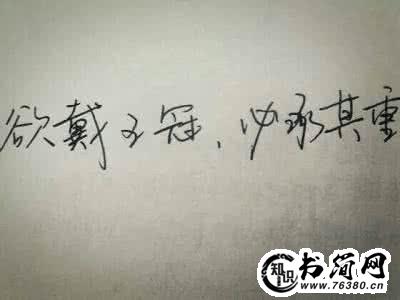 欲戴王冠、必承其重
知识
书简网
www.76380.cn